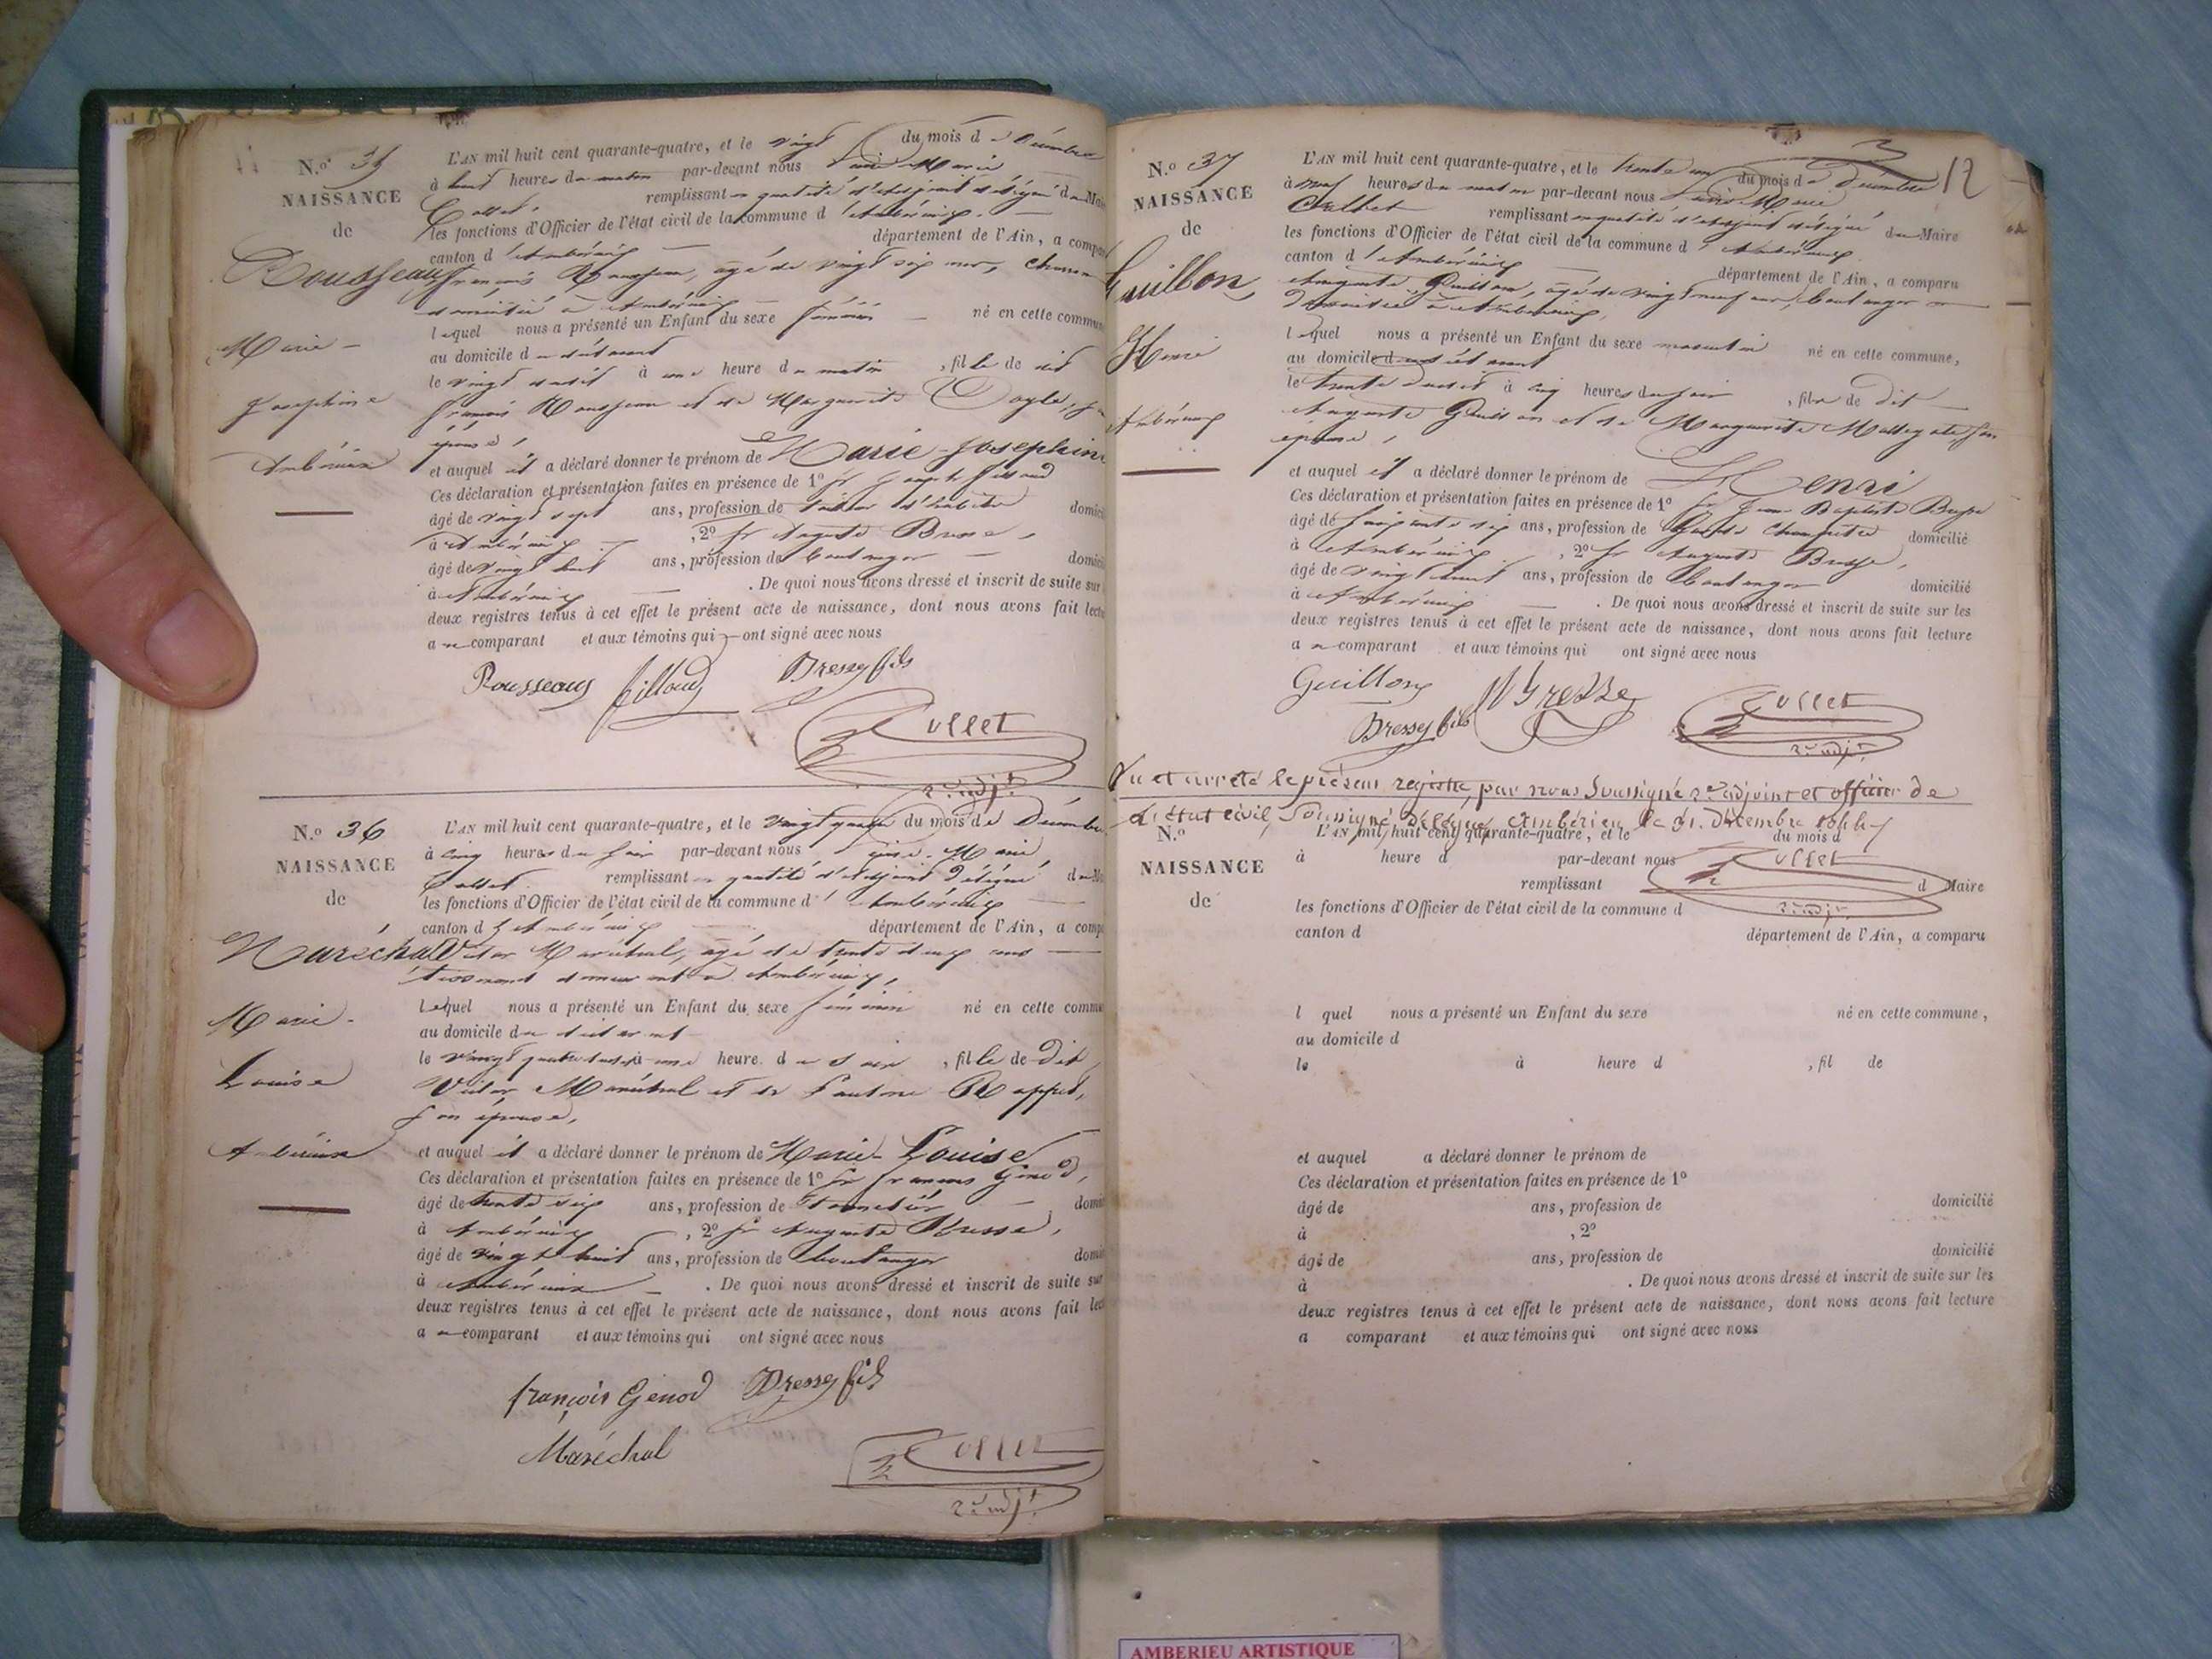 N.º 35
NAISSANCE
de
Rousseau
Marie
Josephine
Ambérieux
L'AN mil huit cent quarante-quatre, et le vingt du mois de Décembre
à huit heures du matin par-devant nous Marie
Collet remplissant en qualité d'adjoint délégué du Maire
les fonctions d'Officier de l'état civil de la commune d'Ambérieux
canton d'Ambérieux département de l'Ain, a comparu
françois Rousseau, agé de vingt six ans,
domicilié à Ambérieux
lequel nous a présenté un Enfant du sexe féminin né en cette commune
au domicile du déclarant
le vingt dudit à une heure du matin, fille de dit
françois Rousseau et de Marguerite
épouse,
et auquel il a déclaré donner le prénom de Marie-Josephine
Ces déclaration et présentation faites en présence de 1º Sr
âgé de vingt sept ans, profession de tailleur d'habits domicilié
à Ambérieux, 2º Sr Auguste
âgé de vingt huit ans, profession de boulanger domicilié
à Ambérieux. De quoi nous avons dressé et inscrit de suite sur
deux registres tenus à cet effet le présent acte de naissance, dont nous avons fait lecture
au comparant et aux témoins qui ont signé avec nous
Rousseaux
Collet
2e adjt
N.º 36
NAISSANCE
de
Maréchal
Marie
Louise
Ambérieux
L'AN mil huit cent quarante-quatre, et le vingt quatre du mois de Décembre
à cinq heures du soir par-devant nous Marie
Collet remplissant en qualité d'adjoint délégué du Maire
les fonctions d'Officier de l'état civil de la commune d'Ambérieux
canton d'Ambérieux département de l'Ain, a comparu
Victor Maréchal, agé de trente deux ans
tisserand demeurant à Ambérieux,
Lequel nous a présenté un Enfant du sexe féminin né en cette commune
au domicile du déclarant
le vingt quatre dudit à une heure du soir, fille de dit
Victor Maréchal et de Rappet,
son épouse,
et auquel il a déclaré donner le prénom de Marie-Louise
Ces déclaration et présentation faites en présence de 1º Sr françois Genod,
âgé de trente six ans, profession de domicilié
à Ambérieux, 2º Sr Auguste
âgé de vingt huit ans, profession de boulanger domicilié
à Ambérieux. De quoi nous avons dressé et inscrit de suite sur
deux registres tenus à cet effet le présent acte de naissance, dont nous avons fait lecture
au comparant et aux témoins qui ont signé avec nous
françois Genod
Maréchal
Collet
2e adjt
12
N.º 37
NAISSANCE
de
Guillon,
Henri
Ambérieux
L'AN mil huit cent quarante-quatre, et le trente un du mois de Décembre
à neuf heures du matin par-devant nous Marie
Collet remplissant en qualité d'adjoint délégué du Maire
les fonctions d'Officier de l'état civil de la commune d'Ambérieux
canton d'Ambérieux département de l'Ain, a comparu
Auguste Guillon, agé de vingt neuf ans, boulanger
domicilié à Ambérieux,
lequel nous a présenté un Enfant du sexe masculin né en cette commune,
au domicile du déclarant
le trente dudit à cinq heures du soir, fils de dit
Auguste Guillon et de Marguerite son
épouse,
et auquel il a déclaré donner le prénom de Henri
Ces déclaration et présentation faites en présence de 1º Sr Jean Baptiste
âgé de soixante six ans, profession de Garde Champêtre domicilié
à Ambérieux, 2º Sr Auguste
âgé de vingt huit ans, profession de boulanger domicilié
à Ambérieux. De quoi nous avons dressé et inscrit de suite sur les
deux registres tenus à cet effet le présent acte de naissance, dont nous avons fait lecture
au comparant et aux témoins qui ont signé avec nous
Guillon
Collet
2e adjt
Vu et arrêté le présent registre, par nous Soussigné 2e adjoint et officier de
L'état civil, Soussigné Délégué, Ambérieu le 31 décembre 1844
Collet
2e adjt
N.º
NAISSANCE
de
L'AN mil huit cent quarante-quatre, et le du mois d
à heure d par-devant nous
remplissant d Maire
les fonctions d'Officier de l'état civil de la commune d
canton d département de l'Ain, a comparu
l quel nous a présenté un Enfant du sexe né en cette commune,
au domicile d
le à heure d , fil de
et auquel a déclaré donner le prénom de
Ces déclaration et présentation faites en présence de 1º
âgé de ans, profession de domicilié
à , 2º
âgé de ans, profession de domicilié
à . De quoi nous avons dressé et inscrit de suite sur les
deux registres tenus à cet effet le présent acte de naissance, dont nous avons fait lecture
a comparant et aux témoins qui ont signé avec nous
AMBERIEU ARTISTIQUE